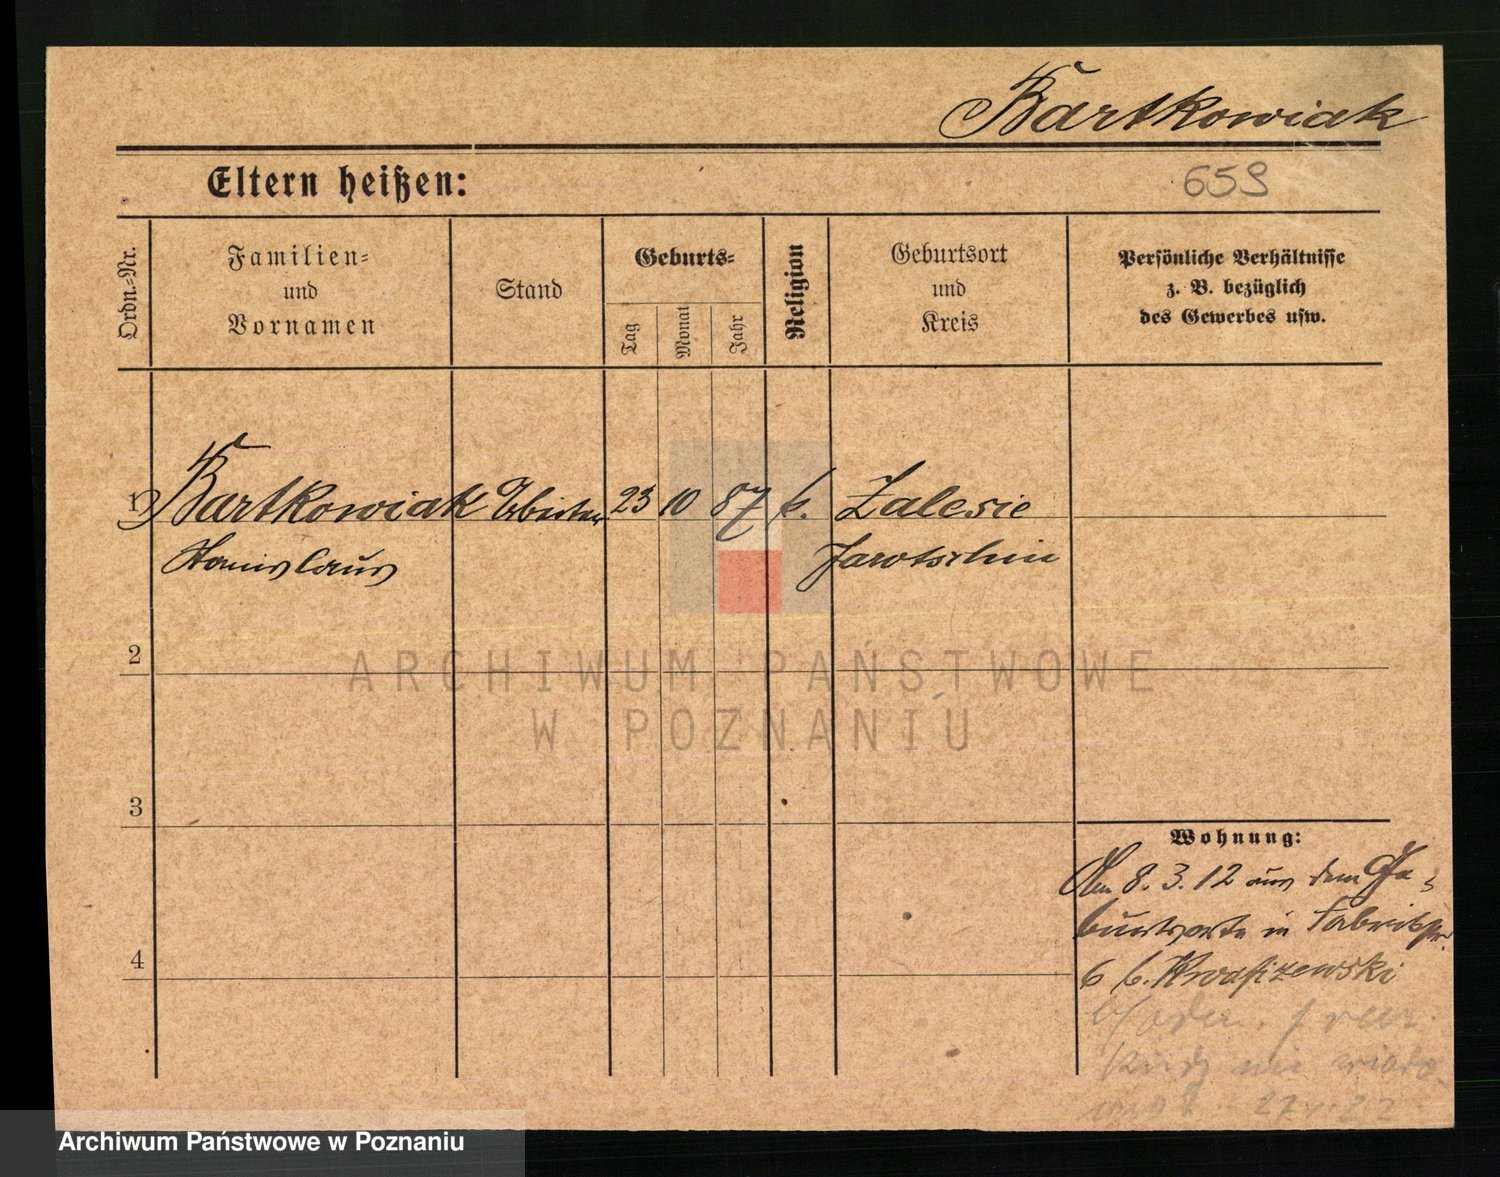 Bartkowiak
Eltern heißen:
659
Ordn.-Nr.
Familien-
und
Vornamen
Stand
Geburts-
Tag
Monat
Jahr
Religion
Geburtsort
und
Kreis
Persönliche Verhältnisse
z. B. bezüglich
des Gewerbes usw.
1 Bartkowiak Arbeiter 23 10 87 k. Zalesie
Stanislaus Jarotschin
2
ARCHIWUM PAŃSTWOWE
W POZNANIU
3
Wohnung:
Am 8. 3. 12 aus dem Ge-
burtsorte in Fabrikstr.
6 b.
4
nie wiado-
Archiwum Państwowe w Poznaniu